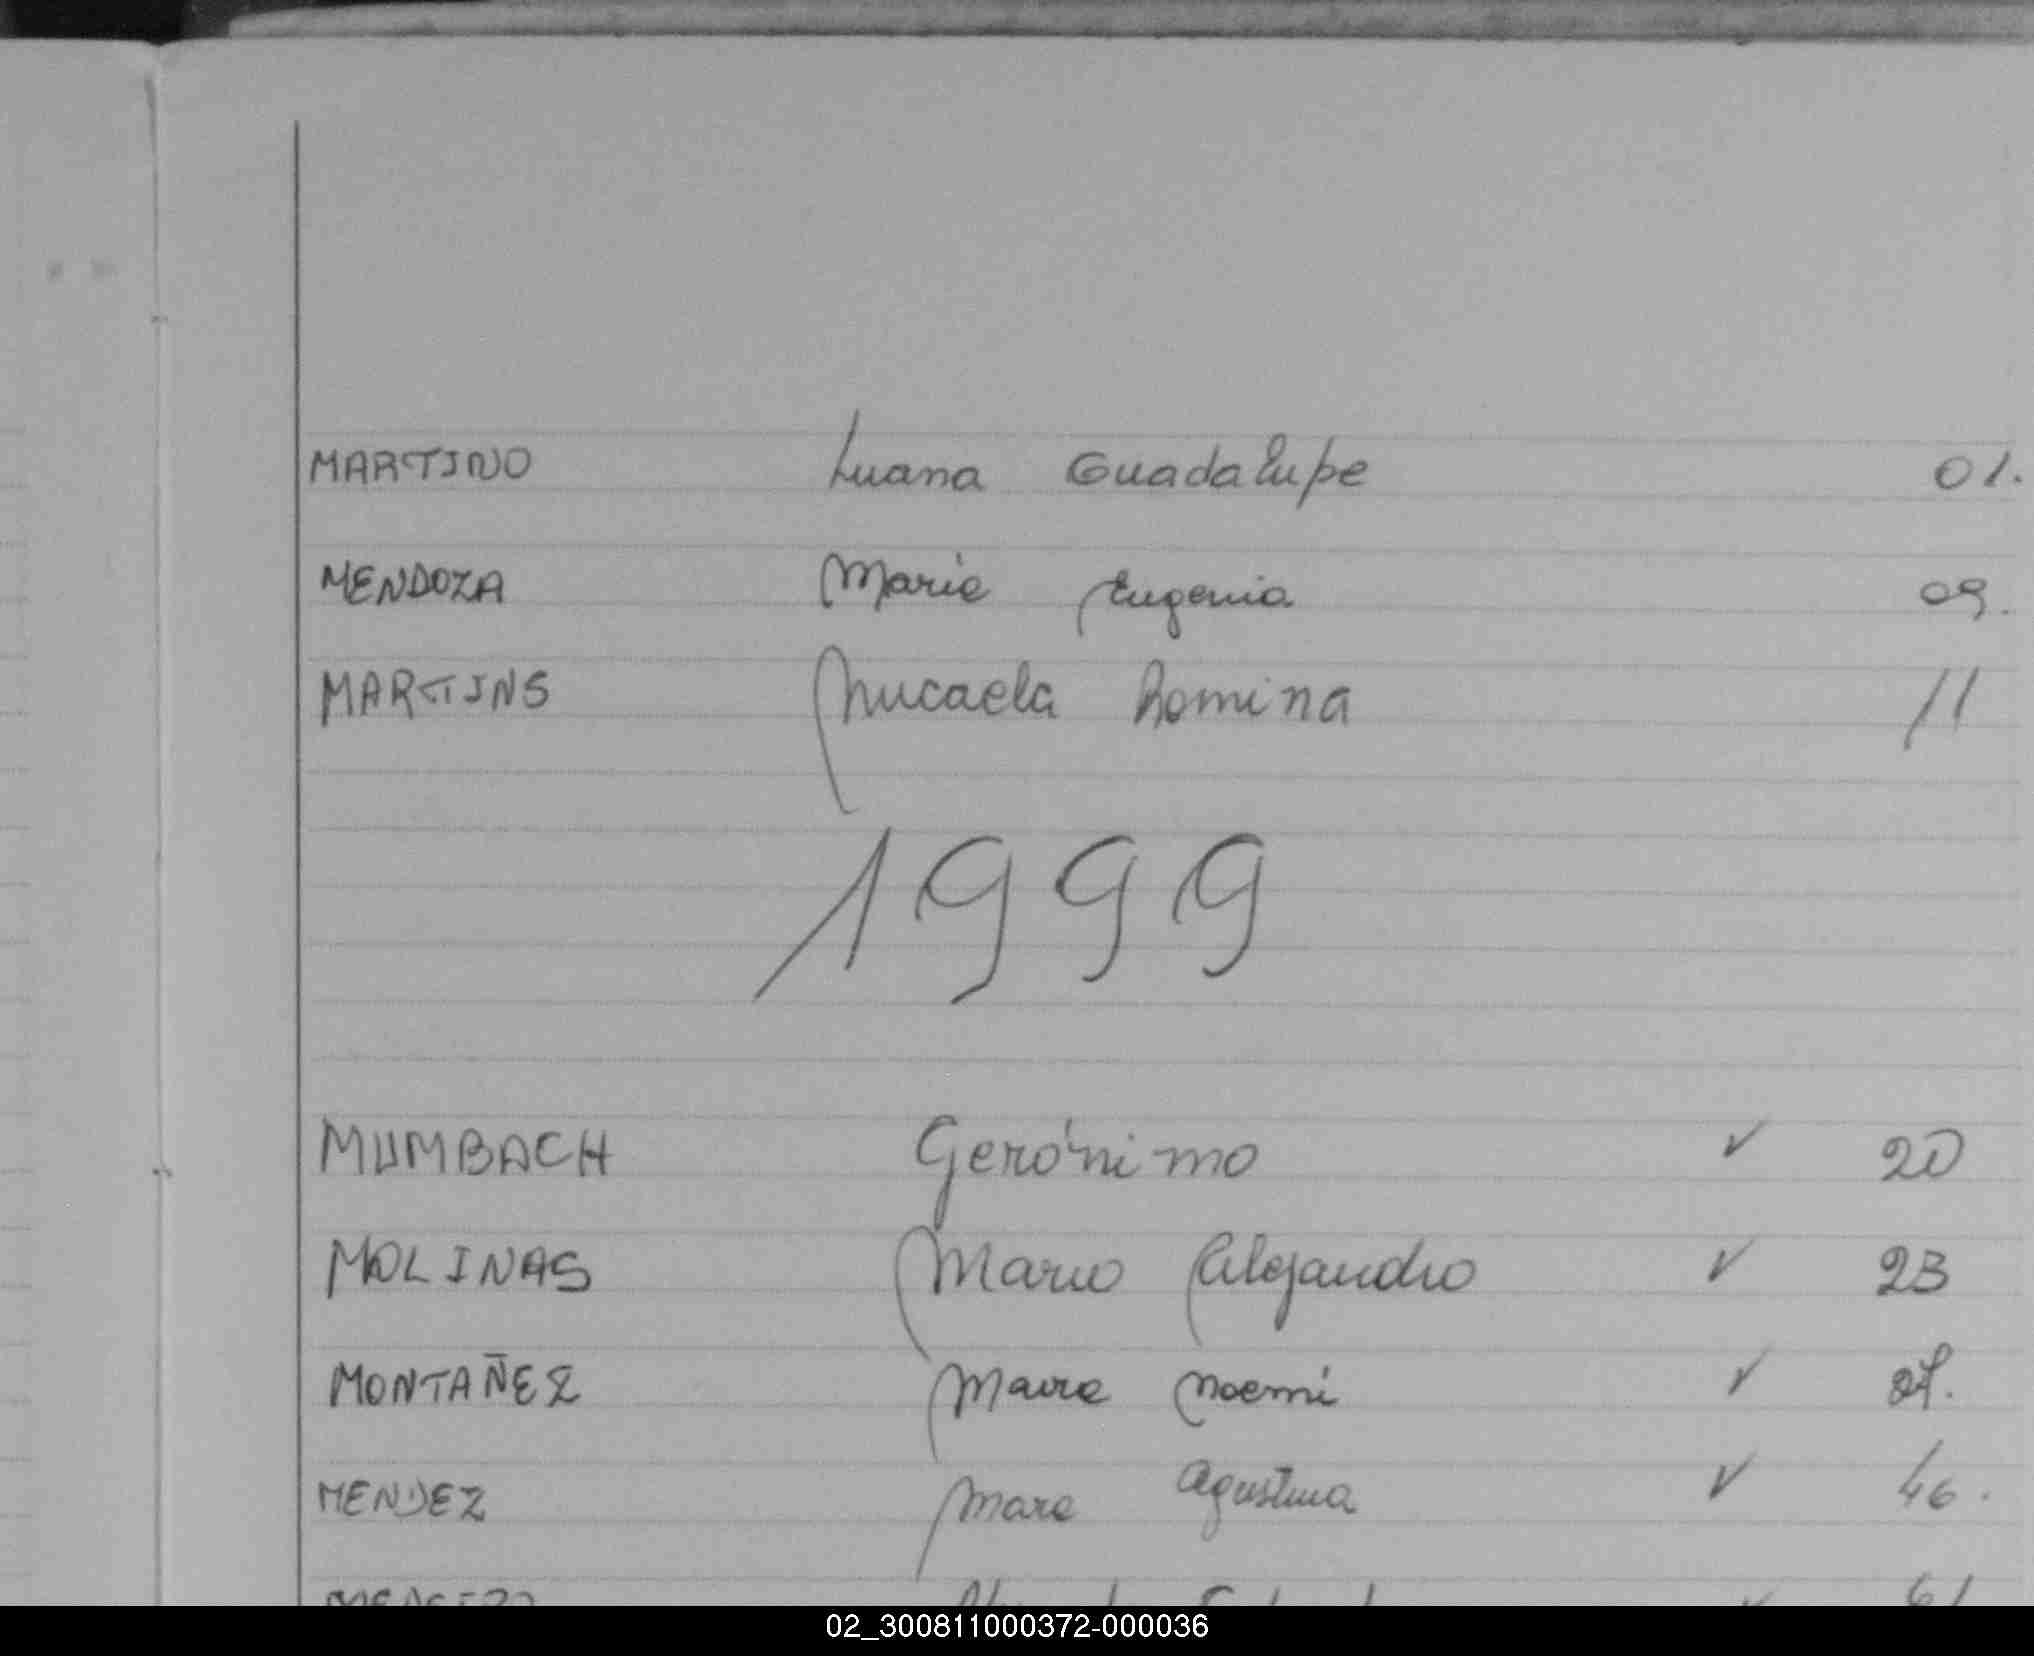 MARTINO Luana Guadalupe 01.
MENDOZA Maria Eugenia 09.
MARTINS Micaela Romina 11
1999
MUMBACH Gerónimo ✓ 20
MOLINAS Mario Alejandro ✓ 23
MONTAÑEZ Maira Noemi ✓ 27.
MENDEZ Mara Agustina ✓ 46.
61
02_300811000372-000036